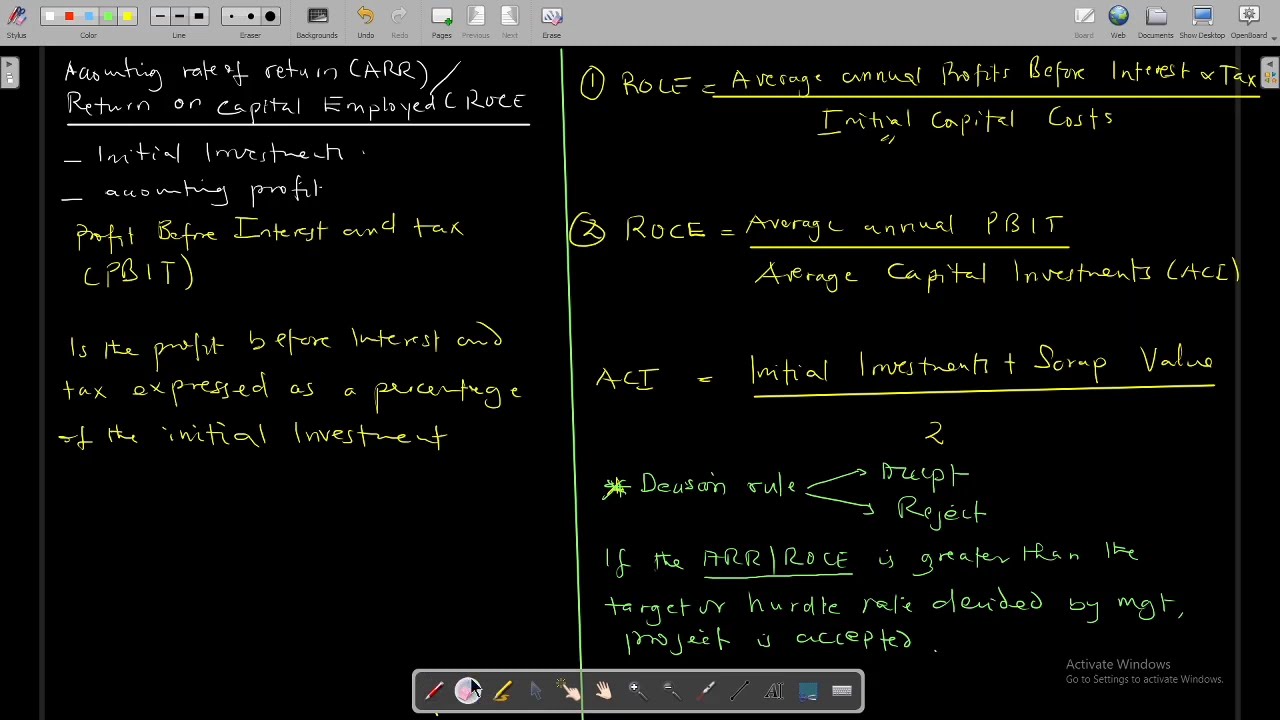 Stylus
Color
Line
Eraser
Backgrounds
Undo
Redo
Pages
Previous
Next
Erase
Board
Web
Documents
Show Desktop
OpenBoard
Acounting rate of return (ARR) /
Return on capital Employed (ROCE
- Initial Investment
- acounting profit
profit Before Interest and tax
(PBIT)
Is the profit before Interest and
tax expressed as a percentage
of the initial Investment
① ROCE = Average annual Profits Before Interest & Tax
Initial Capital Costs
② ROCE = Average annual PBIT
Average Capital Investments (ACI)
ACI = Initial Investment + Scrap Value
2
* Decision rule
Accept
Reject
If the ARR|ROCE is greater than the
target or hurdle rate decided by mgt,
project is accepted.
Activate Windows
Go to Settings to activate Windows.